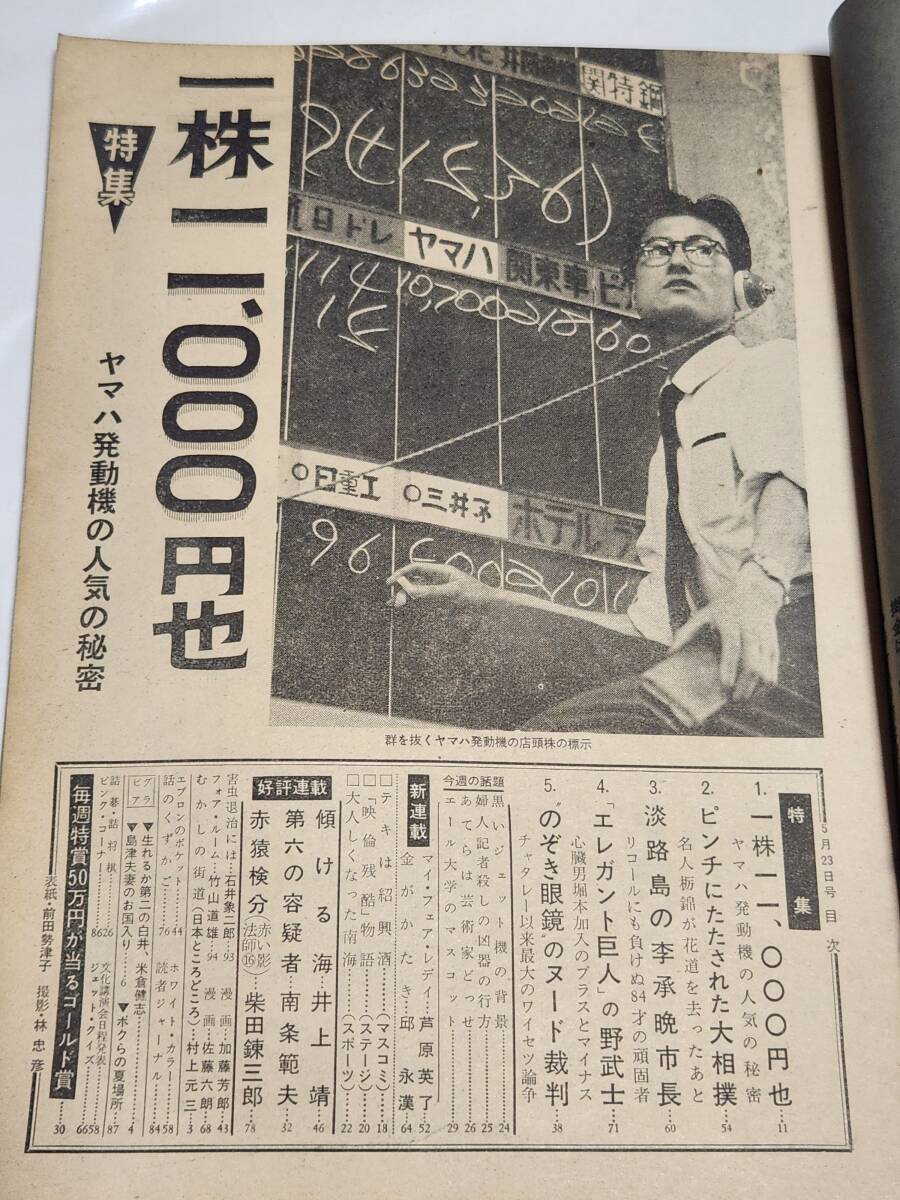 特集
一株一一、000円也
ヤマハ発動機の人気の秘密
関特鋼
日ドレ
ヤマハ
関東車
ビ
10,700
60
日重工
三井不
ホテル
96
群を抜くヤマハ発動機の店頭株の標示
5月23日号 目次
特集
1. 一株一一、〇〇〇円也 11
ヤマハ発動機の人気の秘密
2. ピンチにたたされた大相撲 54
名人栃錦が花道を去ったあと
3. 淡路島の李承晩市長 60
リコールにも負けぬ84才の頑固者
4. 「エレガント巨人」の野武士 71
心臓男堀本加入のプラスとマイナス
5. “のぞき眼鏡”のヌード裁判 38
チャタレー以来最大のワイセツ論争
今週の話題
黒いジェット機の背景 24
婦人記者殺しの凶器の行方 25
あてらは芸術家どっせ 26
エール大学のマスコット 29
新連載
マイ・フェア・レディ 芦原英了 52
金がかたき 邱永漢 64
□テキは紹興酒(マスコミ) 18
□「映倫残酷」物語(ステージ) 20
□大人しくなった南海(スポーツ) 22
好評連載
傾ける海 井上靖 46
第六の容疑者 南条範夫 32
赤猿検分(赤い影法師⑯) 柴田錬三郎 78
害虫退治には 石井象二郎 93
フォア・ルーム 竹山道雄 94
漫画 加藤芳郎 43
漫画 佐藤六朗 68
むかしの街道(日本ところどころ) 村上元三 3
エプロンのポケット 44
話のくずかご 76
ホワイト・カラー 58
読者ジャーナル 84
グラビア
▼生れるか第二の白井、米倉健志 4
▼島津夫妻のお国入り 6
▼ボクらの夏場所 87
詰碁・詰将棋 26
ピンク・コーナー 86
文化講演会日程発表 58
ジェット・クイズ 66
毎週特賞50万円が当るゴールド賞 30
表紙・前田勢津子 撮影・林忠彦